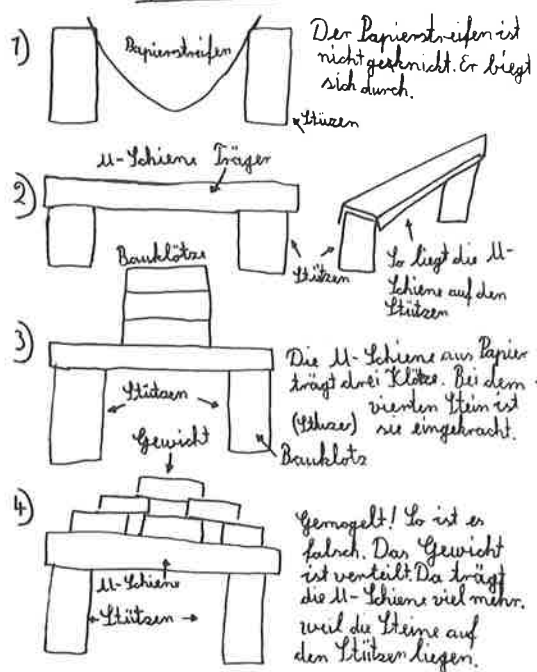 1)
Papierstreifen
Der Papierstreifen ist
nicht geknickt. Er biegt
sich durch.
Stüzen
2)
U-Schiene Träger
Stützen
So liegt die U-
Schiene auf den
Stützen
3)
Bauklötze
Stützen
Bauklotz
Die U-Schiene aus Papier
trägt drei Klötze. Bei dem
vierten Stein ist
sie eingekracht.
4)
Gewicht
U-Schiene
Stützen
Gemogelt! So ist es
falsch. Das Gewicht
ist verteilt. Da trägt
die U-Schiene viel mehr.
weil die Steine auf
den Stützen liegen.